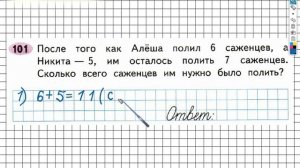 101 После того как Алёша полил 6 саженцев, а
Никита — 5, им осталось полить 7 саженцев.
Сколько всего саженцев им нужно было полить?
1) 6+5=11(с
Ответ: